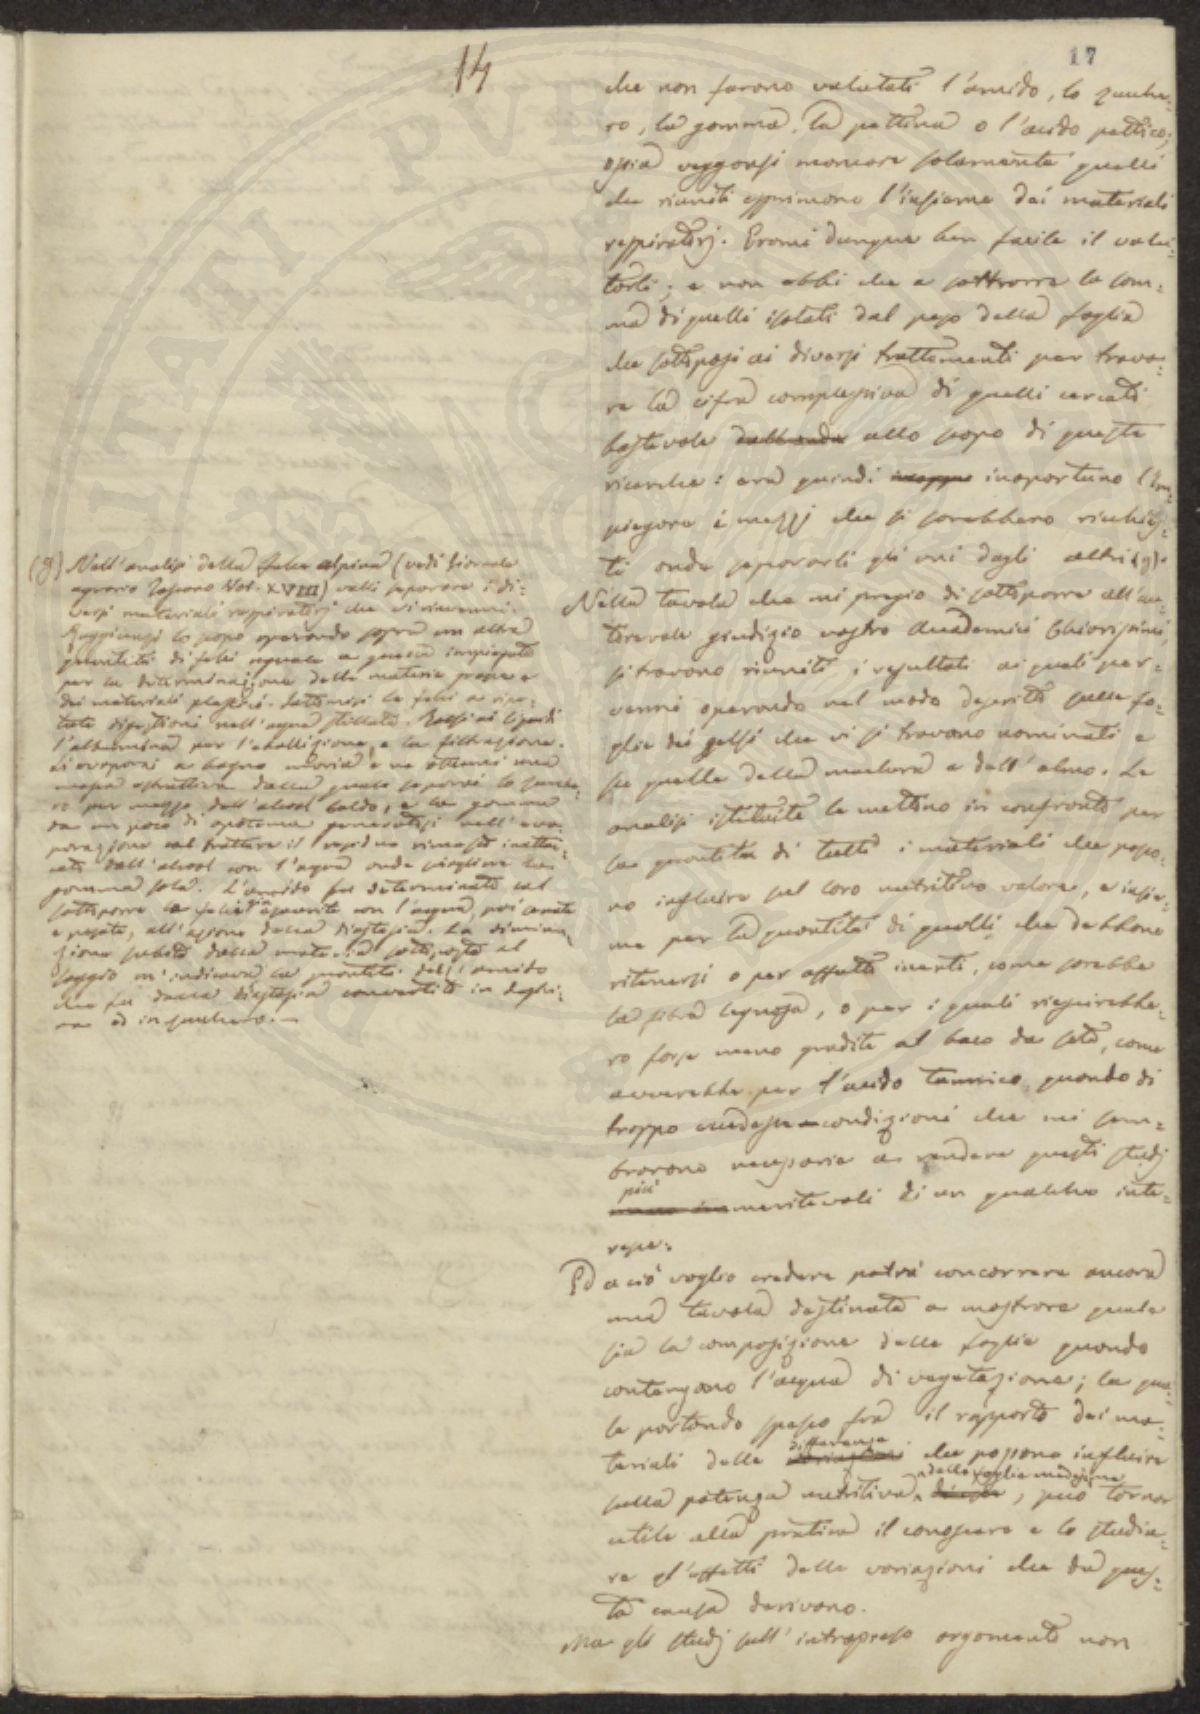 14
17
che non furono valutati l'amido, lo zucche-
ro, la gomma, la pettina o l'acido pettico;
ossia veggonsi mancare solamente quelli
che riuniti esprimono l'insieme dei materiali
respiratorj. Eromi dunque ben facile il valu-
tarli; e non ebbi che a sottrarre la som-
ma di quelli isolati dal peso della foglia
che sottoposi ai diversi trattamenti per trova-
re la cifra complessiva di quelli cercati
bastevole allo scopo di queste
ricerche: era quindi inoportuno l'im-
piegare i mezzi che si sarebbero richies-
ti onde separarli gli uni dagli altri (g).
Nella tavola che mi pregio di sottoporre all'au-
torevole giudizio vostro Accademici Chiarissimi,
si trovano riuniti i resultati ai quali per-
venni operando nel modo descritto sulle fo-
glie dei gelsi che vi si trovano nominati e
su quelle della maclura e dell'olmo. Le
analisi istituite le mettono in confronto per
la quantità di tutti i materiali che posso-
no influire sul loro nutritivo valore, e insie-
me per la quantità di quelli che debbono
ritenersi o per affatto inerti, come sarebbe
la fibra legnosa, o per i quali riescirebbe-
ro forse meno gradite al baco da seta, come
avverrebbe per l'acido tannico quando di
troppo condizioni che mi sem-
brarono necessarie a rendere questi studj
più
meritevoli di un qualche inte-
resse.
Ed a ciò voglio credere potrà concorrere ancora
una tavola destinata a mostrare quale
sia la composizione delle foglie quando
contengono l'acqua di vegetazione; la qua-
le portando spesso fra il rapporto dei ma-
teriali delle differenze che possono influire
sulla potenza nutritiva delle foglie medesime, può tornar
utile alla pratica il conoscere e lo studia-
re gl'effetti delle variazioni che da ques-
ta causa derivano.
Ma gli studj sull'intrapreso argomento non
(g) Nell'analisi della felce alpina (vedi Giornale
agrario Toscano Vol. XVIII) volli separare i di-
versi materiali respiratorj che vi rinvenni.
Raggiunsi lo scopo operando sopra un'altra
quantità di felci eguale a quella impiegata
per la determinazione delle materie grasse e
dei materiali plastici. Sottomisi le felci a ripe-
tute digestioni nell'acqua stillata. dai liquidi
l'albumina per l'ebollizione, e la filtrazione.
Li evaporai a bagno maria e ne ottenni una
massa estrattiva dalla quale separai lo zucche-
ro per mezzo dell'alcool caldo, e la gomma
da un poco di apotema generatosi nell'eva-
porazione col trattare il residuo rimasto inattac-
cato dall'alcool con l'acqua onde sciogliere la
gomma sola. L'amido fu determinato col
sottoporre le felci esaurite con l'acqua, poi
e pesate, all'azione della diastasia. La diminu-
zione subita dalla materia sottoposta al
saggio m'indicava la quantità dell'amido
che fu dalla diastasia convertito in destri-
na ed in zucchero.